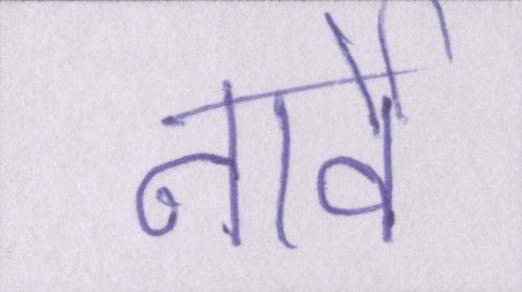 नार्वे